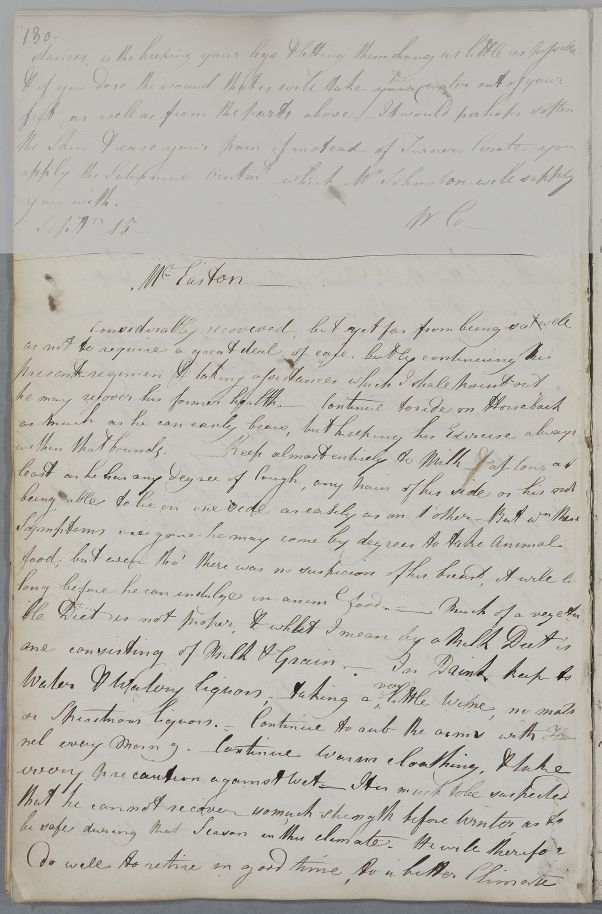 180-
stances, is the keeping your legs & letting them hang as little as possible
& if you do so the wound that is will take the water out of your
feet as well as from the parts above. It would perhaps soften
the Skin & ease your pain if instead of Turners Cerate you
apply the Saturnine Ointmt. which Mr Johnston will supply
you with.
Septr 15 W C
Mr Easton
Considerably recovered, but yet far from being so well
as not to require a great deal of care. but by continuing his
present regimen & taking assistances which I shall point out
he may recover his former health. Continue to ride on Horseback
as much as he can easily bear, but keeping his Exercise always
within that bounds. Keep almost entirely to Milk Diet long as
least as he has any degree of Cough, any pain of his side or his not
being able to lie on one side as easily as on t'other. But wn these
Symptoms are gone he may come by degrees to take animal
food, but even tho' there was no suspicion of his breast, it will be
long before he can indulge in animl food. Much of a vegeta
ble Diet is not proper, & what I mean by a Milk Diet is
one consisting of Milk & Grain. In Drink keep to
Water & Watery liquors, taking a very little Wine, no malt
or Spirituous liquors. Continue to rub the arms with Flan
nel every Morng. Continue warm cloathing, & take
every precaution against Wet. It is much to be suspected
that he cannot recover so much strength before Winter as to
be safe during that Season in this climate. He will therefore
do well to retire in good time, to a better Climate